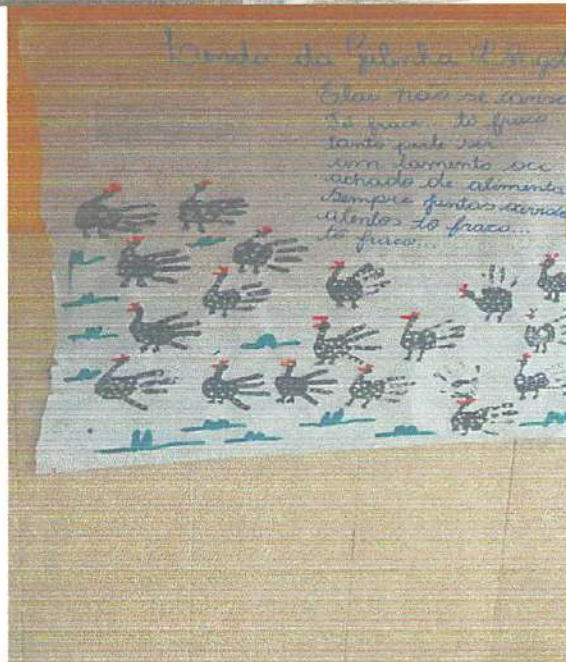 Lenda da Galinha d'Angol
Elas não se cansa
Tô fraco.. tô fraco
tanto pode ser
um lamento ou
achado de alimento
sempre juntas
atentas tô fraco...
tô fraco...